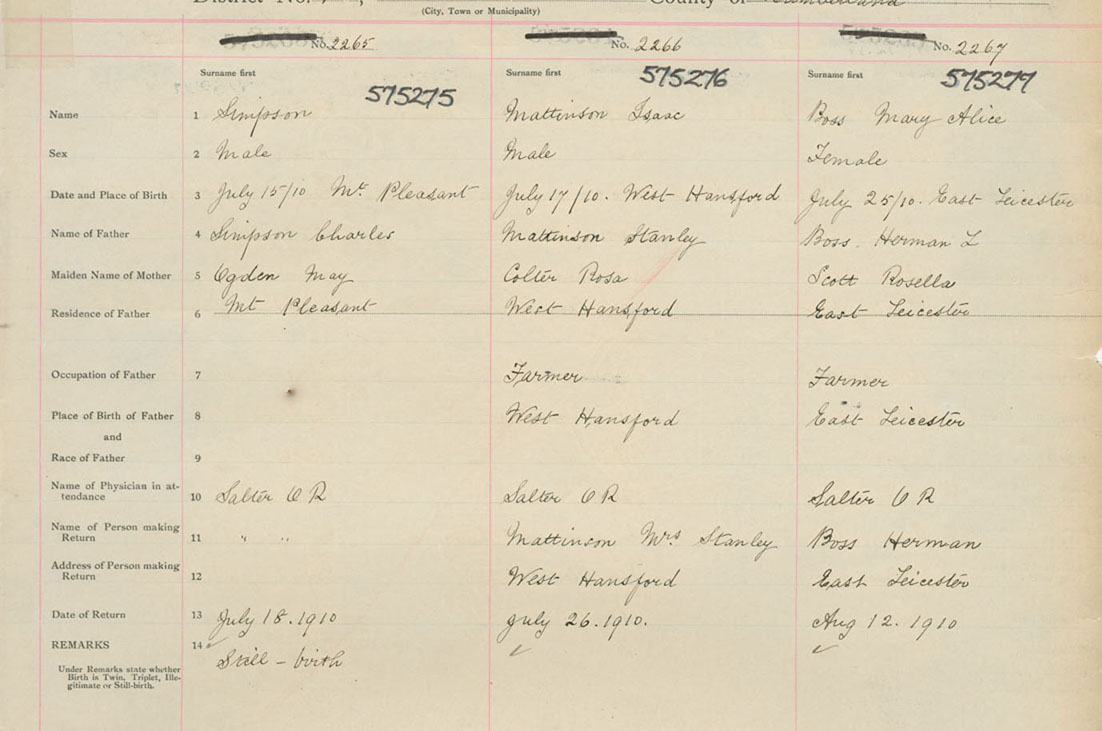 District No. County of Cumberland
(City, Town or Municipality)
No. 2265 No. 2266 No. 2267
Surname first Surname first Surname first
575275 575276 575277
Name 1 Simpson Mattinson Isaac Boss Mary Alice
Sex 2 Male Male Female
Date and Place of Birth 3 July 15/10 Mt. Pleasant July 17/10. West Hansford July 25/10. East Leicester
Name of Father 4 Simpson Charles Mattinson Stanley Boss. Herman L
Maiden Name of Mother 5 Ogden May Colter Rosa Scott Rosella
Residence of Father 6 Mt Pleasant West Hansford East Leicester
Occupation of Father 7 Farmer Farmer
Place of Birth of Father 8 West Hansford East Leicester
and
Race of Father 9
Name of Physician in at-
tendance 10 Salter C R Salter C R Salter C R
Name of Person making
Return 11 " " Mattinson Mrs Stanley Boss Herman
Address of Person making
Return 12 West Hansford East Leicester
Date of Return 13 July 18.1910 July 26.1910. Aug 12.1910
REMARKS 14
Still - birth
Under Remarks state whether
Birth is Twin, Triplet, Ille-
gitimate or Still-birth.